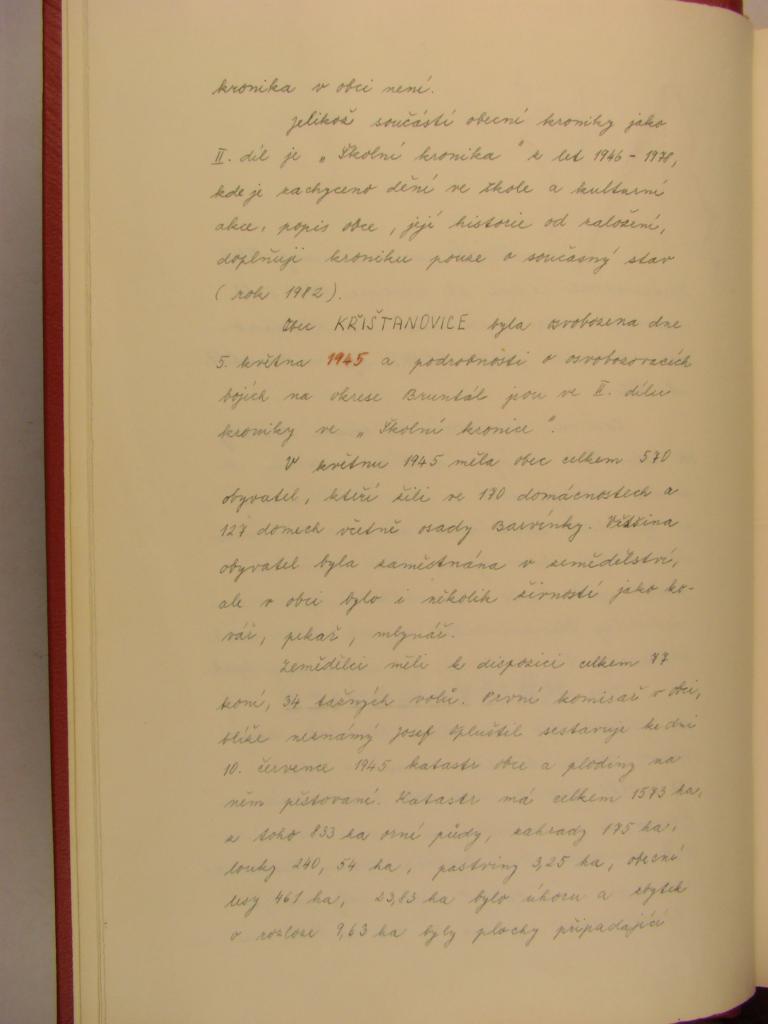 kronika v obci není.
Jelikož součástí obecní kroniky jako
II. díl je „Školní kronika" z let 1946 - 1978,
kde je zachyceno dění ve škole a kulturní
akce, popis obce, její historie od založení,
doplňuji kroniku pouze o současný stav
(rok 1982).
Obec KŘIŠŤANOVICE byla osvobozena dne
5. května 1945 a podrobnosti o osvobozovacích
bojích na okrese Bruntál jsou ve II. dílu
kroniky ve „Školní kronice".
V květnu 1945 měla obec celkem 570
obyvatel, kteří žili ve 170 domácnostech a
127 domech včetně osady Barvínky. Většina
obyvatel byla zaměstnána v zemědělství,
ale v obci bylo i několik živností jako ko-
vář, pekař, mlynář.
Zemědělci měli k dispozici celkem 77
koní, 34 tažných volů. První komisař v obci,
blíže neznámý Josef Spluštil sestavuje ke dni
10. července 1945 katastr obce a plodiny na
něm pěstované. Katastr má celkem 1573 ha,
z toho 833 ha orné půdy, zahrady 175 ha,
louky 240,54 ha, pastviny 3,25 ha, obecní
lesy 461 ha, 23,83 ha bylo úhoru a zbytek
o rozloze 9,63 ha byly plochy připadající